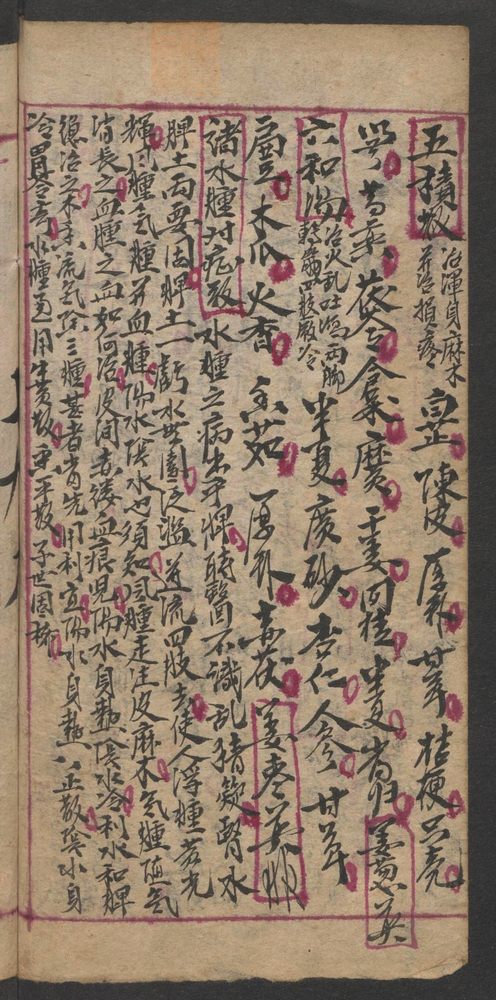 五積散 治渾身麻木 并治損疼 白芷 陳皮 厚朴 甘草 桔梗 只壳
川芎 芍藥 茯令 倉朮 麻黃 干姜 肉桂 半夏 當归 姜葱 煎
六和湯 治火乱吐瀉両脚 轉觔四肢厥冷 半夏 廣砂 杏仁 人參 甘草
扁豆 木瓜 火香 香茹 厚朴 赤茯 姜枣煎服
諸水腫对症散 水腫之病出于脾 時醫不識乱猜疑 腎水
脾土両要固 脾土一虧水無園 泛濫逆流四肢去 使人浮腫若光
輝 風腫氣腫并血腫 陽水陰水也須知 風腫走注皮麻木 氣腫随氣
消長之 血腫之血如何治 皮间赤縷血痕見 陽水身熱陰水冷 利水和脾
總治之 木香流氣除三腫 甚者当先用利宜 陽水身熱八正散 陰水身
冷胃苓 水腫通用生姜 平散 世固